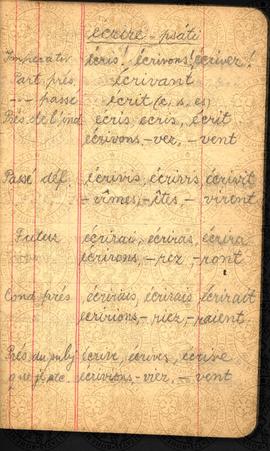 écrire - psáti
Imperativ écris! écrivons! écrivez!
Part. prés. écrivant
-- passé écrit (e, s, es)
Prés. de l'ind. écris écris, écrit
écrivons, -vez, -vent
Passé déf. écrivis, écrivis écrivit
-vîmes, -îtes, -virent
Futur écrirai, écriras, écrira
écrirons, -rez, -ront
Cond. prés. écrirais, écrirais écrirait
écririons, -riez, -raient.
Prés. du subj. écrive, écrives, écrive
que je etc. écrivions -viez, -vent